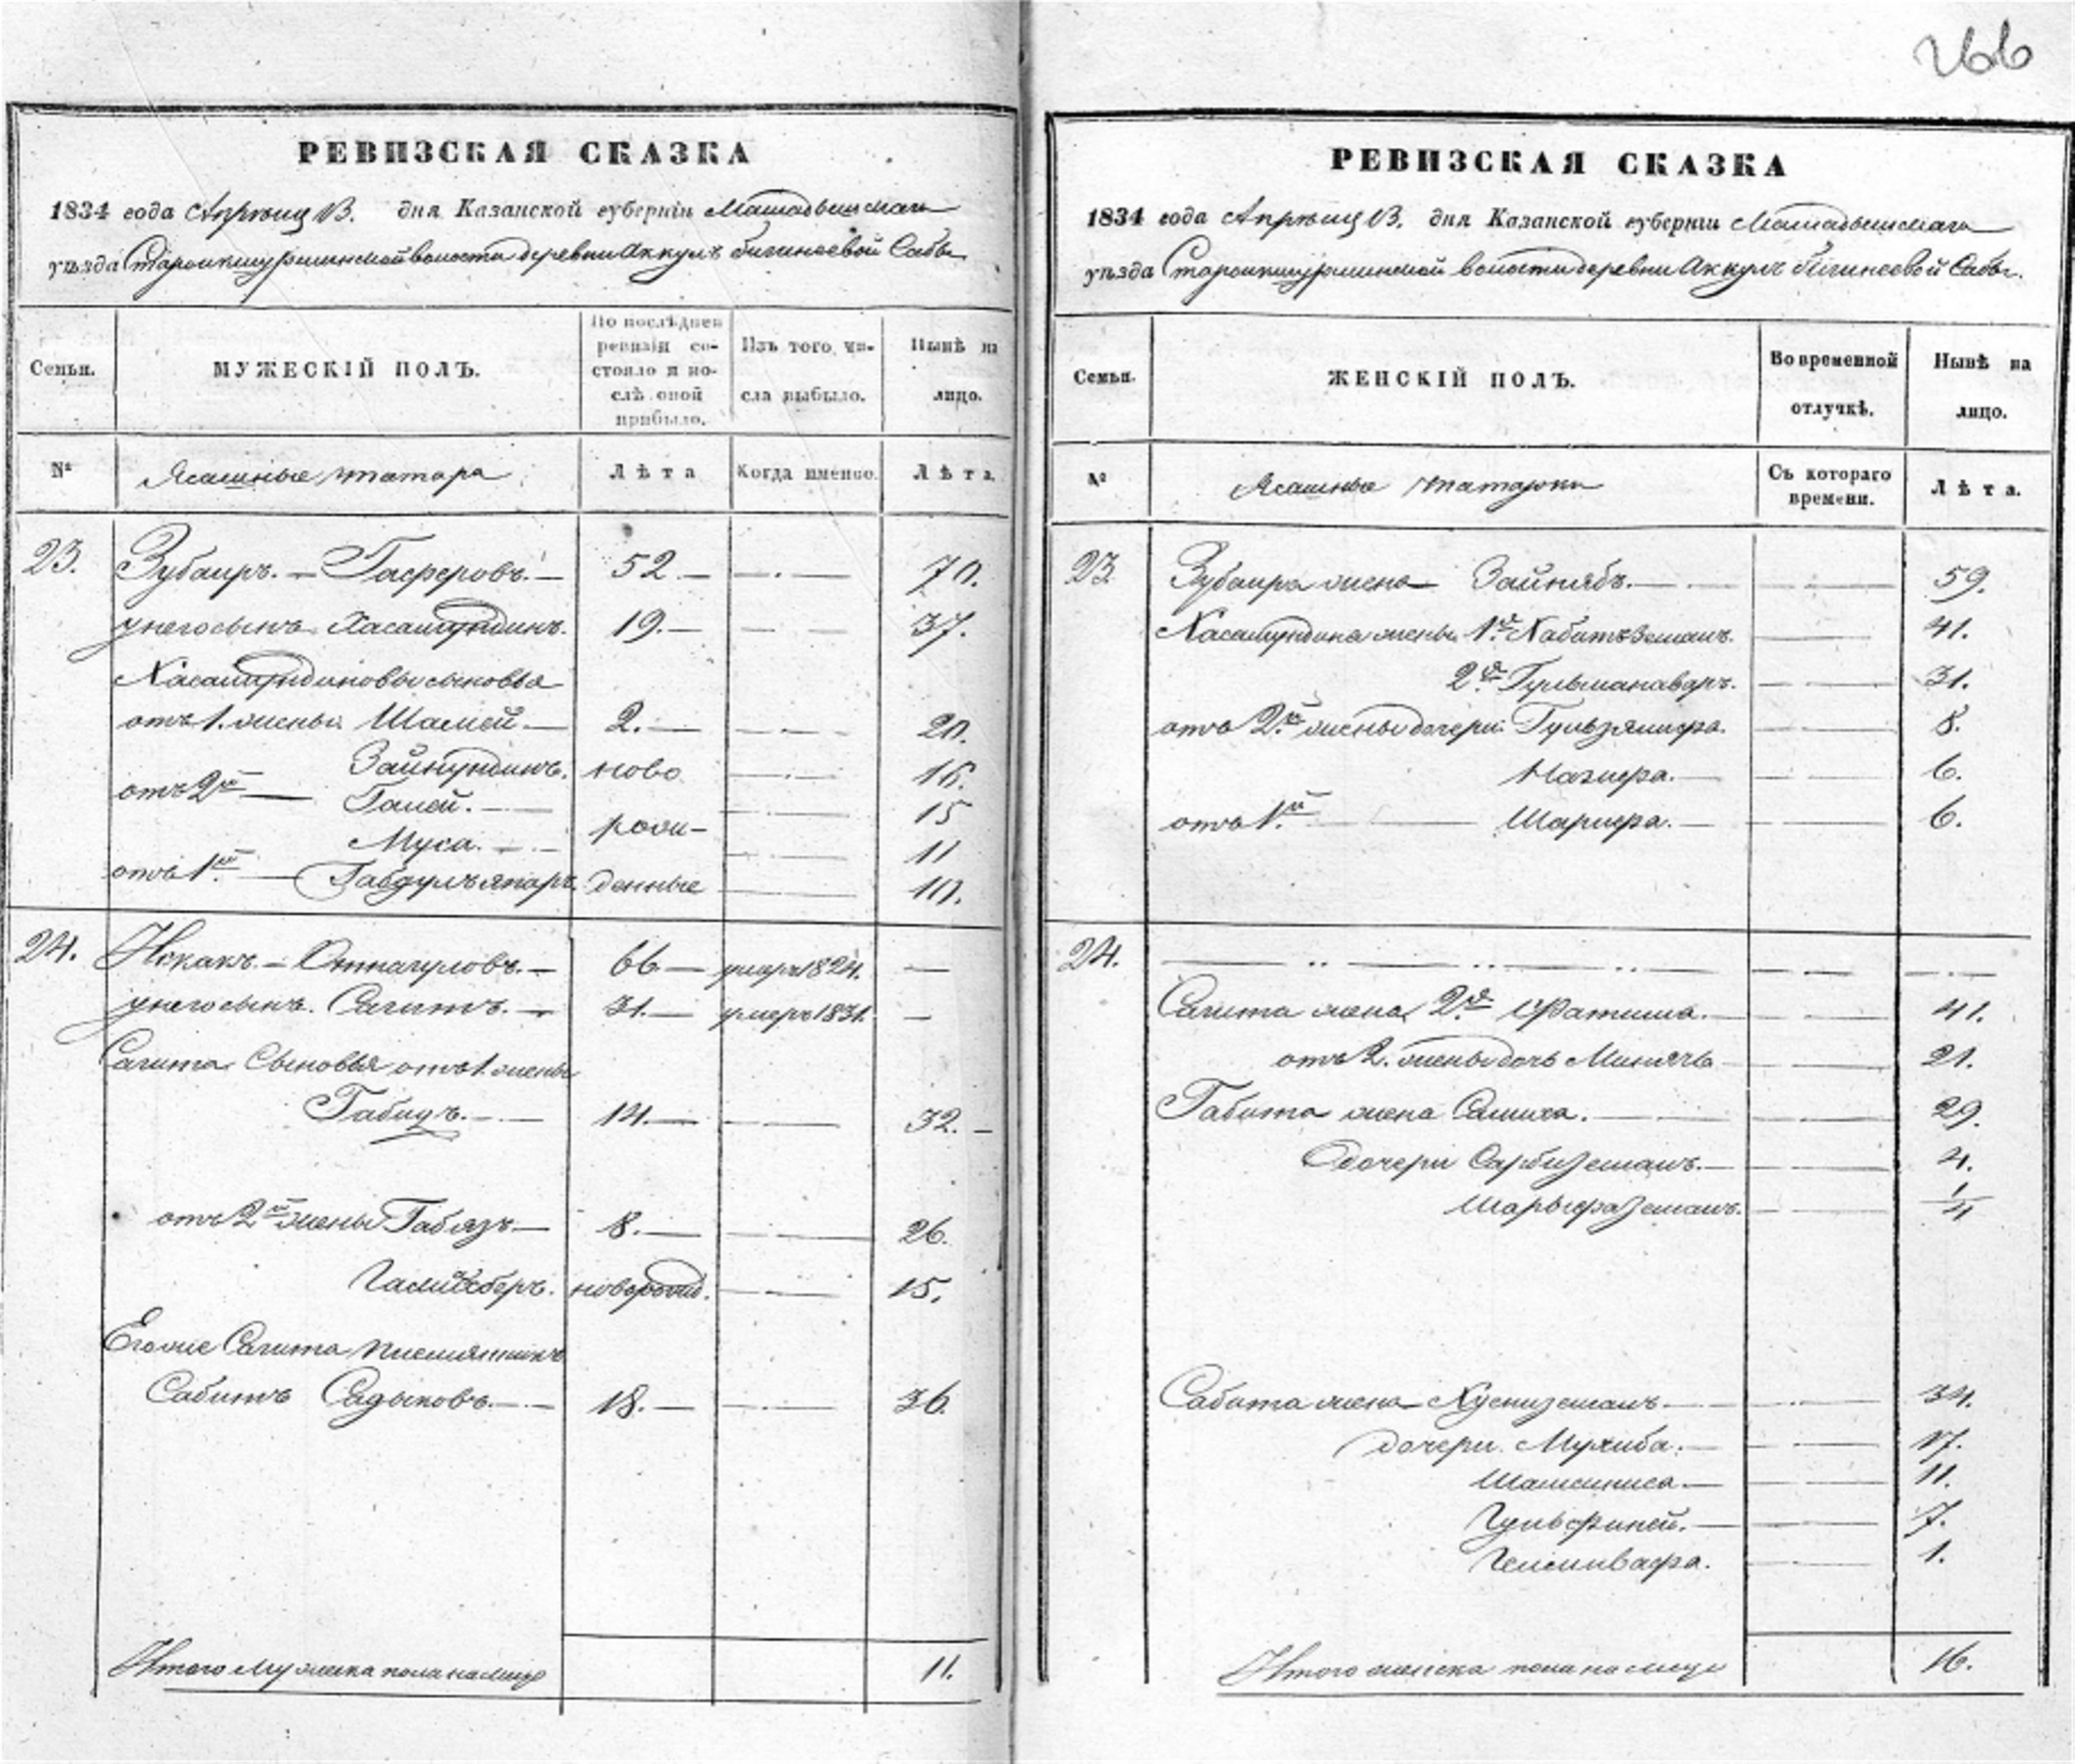 266
РЕВИЗСКАЯ СКАЗКА
1834 года Апрѣля 13. дня Казанской губерніи Мамадышскаго
уѣзда Староикшурминской волости деревни Аккулъ бигинеевой Сабы
Семьи.
МУЖЕСКІЙ ПОЛЪ.
По послѣдней ревизіи состояло и послѣ оной прибыло.
Изъ того числа выбыло.
Нынѣ на лицо.
№
Ясашные татара
Лѣта
Когда именно.
Лѣта.
23. Зубаиръ. — Гафферовъ. — 52. — 70.
у него сынъ Хасамутдинъ. 19. — 37.
Хасамутдиновы сыновья
отъ 1. жены Шамей — 2. — 20.
Зайнутдинъ. ново 16.
отъ 2й — Галей. — 15
Муса. — рож- 11
отъ 1й — Габдулъ япаръ денные 10.
24. Искакъ. — 66 — умеръ 1824. —
у него сынъ. Сагитъ. — 31. — умеръ 1831. —
Сагита Сыновья отъ 1. жены
Габитъ. — 14. — 32. —
отъ 2й жены Габязъ — 8. — 26.
новорожд. 15.
Его же Сагита племянникъ
Сабитъ Садыковъ. — 18. — 36.
Итого мужеска пола на лицо 11.
РЕВИЗСКАЯ СКАЗКА
1834 года Апрѣля 13. дня Казанской губерніи Мамадышскаго
уѣзда Староикшурминской волости деревни Аккулъ бигинеевой Сабы.
Семьи.
ЖЕНСКІЙ ПОЛЪ.
Во временной отлучкѣ.
Нынѣ на лицо.
№
Ясашные татарки
Съ котораго времени.
Лѣта.
23 Зубаира жена — Зайнябъ. — 59.
Хасамутдина жены 1я Хабитъ Земанъ. 41.
2я Гульманаваръ. 31.
отъ 2й жены дочери Гульзямифа. 8.
Назифа. — 6.
отъ 1й — Шарифа. — 6.
24.
Сагита жена 2я Фатима. — 41.
отъ 2. жены дочь — 21.
Габита жена Салиха. — 29.
дочери Сарбиземанъ. — 4.
Шарыфаземанъ. 1/4
Сабита жена — Хусниземанъ. — 34.
дочери. Мухиба. — 17.
Шамсиниса. — 11.
— 7.
1.
Итого женска пола на лицо 16.